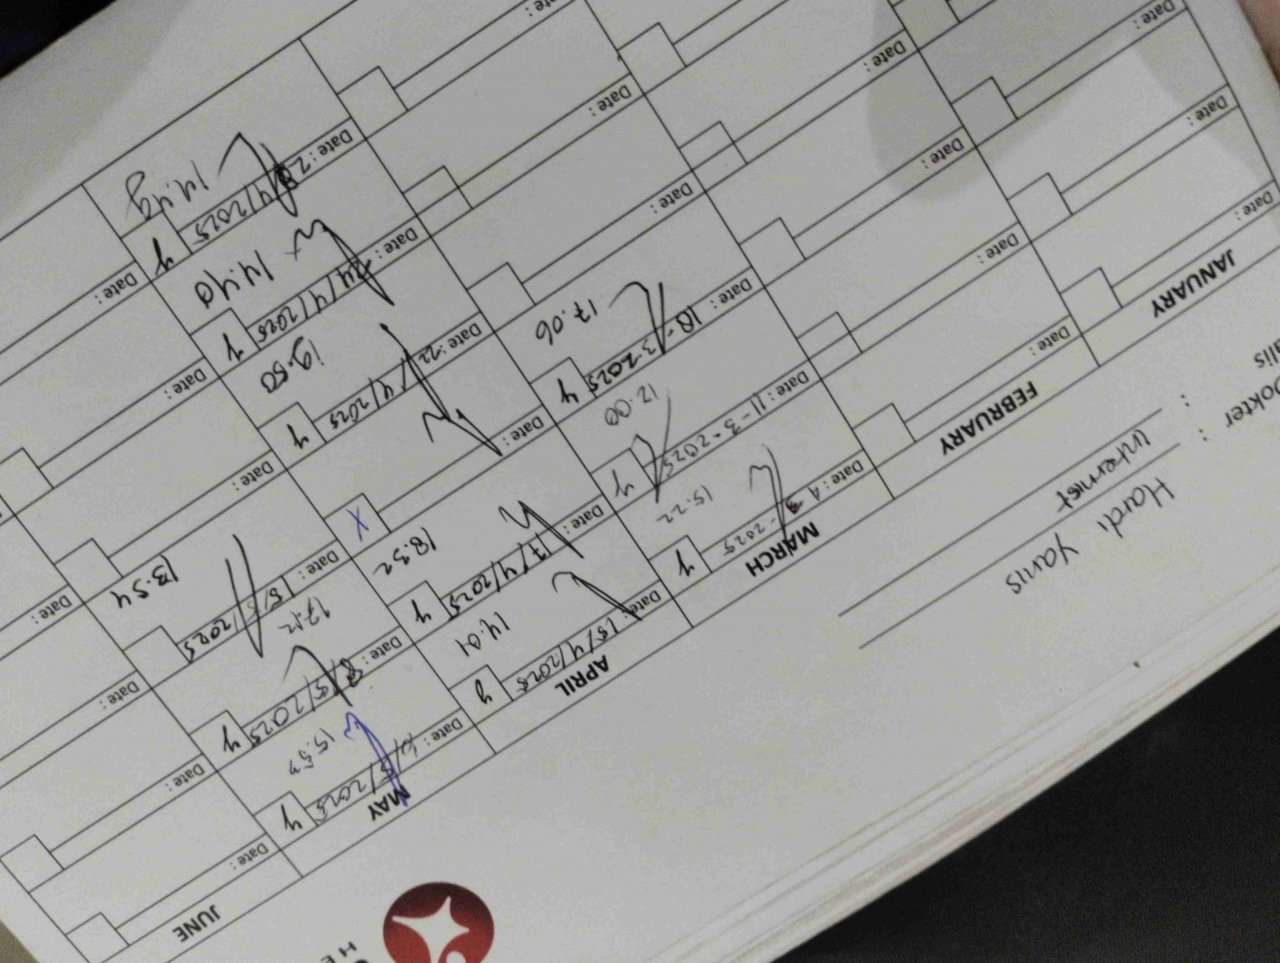 HE
okter : Hardi Yanis
alis : Internist
JANUARY
Date :
Date :
Date :
Date :
FEBRUARY
Date :
Date :
Date :
Date :
MARCH
Date : 4-3-2025
y
15.22
Date : 11-3-2025
y
12.00
Date : 18-3-2025
y
17.06
Date :
Date :
Date :
APRIL
Date : 15/4/2025
y
14.01
Date : 17/4/2025
y
18.32
Date :
X
Date : 22/4/2025
y
19.50
Date : 24/4/2025
y
14.40
Date : 28/4/2025
y
14.49
MAY
Date : 6/5/2025
y
15.57
Date : 8/5/2025
y
17.12
Date : 15/5/2025
13.54
Date :
Date :
Date :
JUNE
Date :
Date :
Date :
Date :